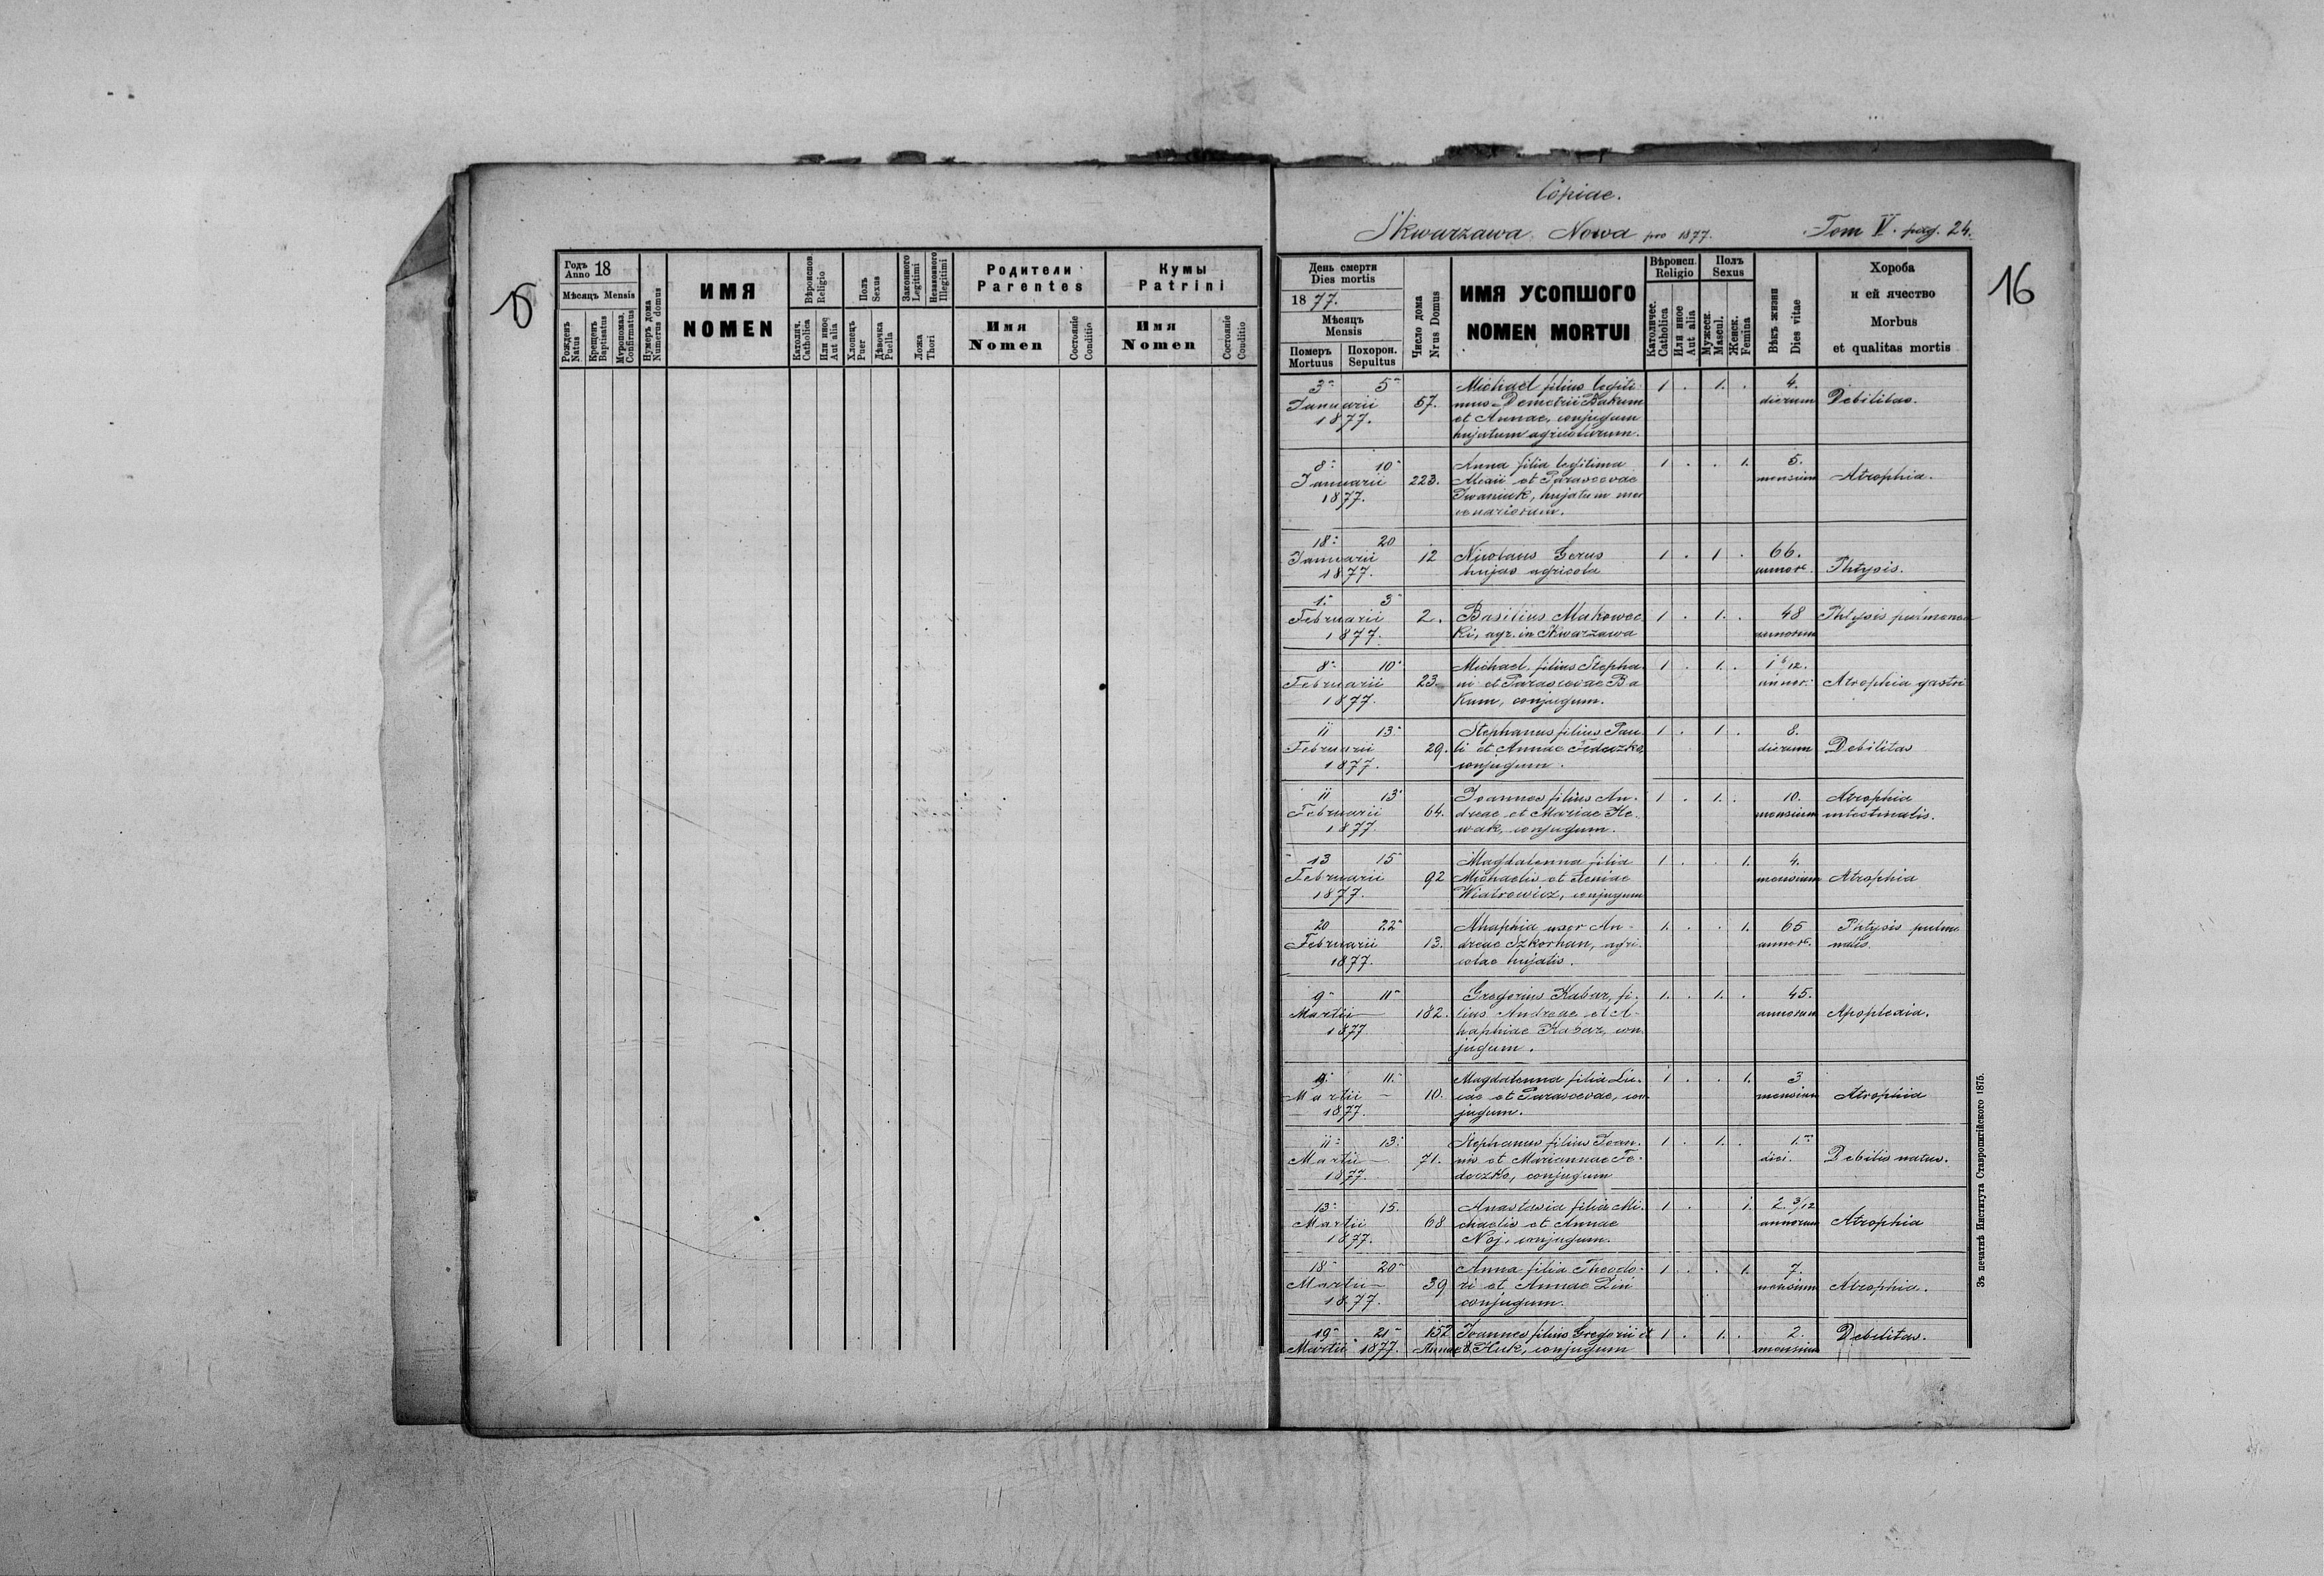 Copiae.
Skwarzawa Nowa pro 1877. Tom V. pag. 24.
15
16
Годъ Anno 18
Мѣсяцъ Mensis
Рожденъ Natus
Крещенъ Baptisatus
Мѵропомаз. Confirmatus
Нумеръ дома Numerus domus
ИМЯ
NOMEN
Вѣроиспов. Religio
Католич. Catholica
Или иное Aut alia
Полъ Sexus
Хлопецъ Puer
Дѣвочка Puella
Законного Legitimi
Незаконного Illegitimi
Ложа Thori
Родители
Parentes
Имя
Nomen
Состояніе Conditio
Кумы
Patrini
Имя
Nomen
Состояніе Conditio
День смерти
Dies mortis
1877.
Мѣсяцъ
Mensis
Померъ Mortuus
Похорон. Sepultus
Число дома Nrus Domus
ИМЯ УСОПШОГО
NOMEN MORTUI
Вѣроисп. Religio
Католичес. Catholica
Или иное Aut alia
Полъ Sexus
Мужеск. Mascul.
Женск. Femina
Вѣкъ жизни Dies vitae
Хороба
и ей ячество
Morbus
et qualitas mortis
3 5 Michael filius legiti- 1 . 1. . 4.
Januarii 57. mus Demetrii Bakum dierum Debilitas.
1877. et Annae, conjugum
hujatum agricolarum.
8. 10 Anna filia legitima 1 . . 1. 5.
Januarii 223. Alexii et Parascevae mensium Atrophia.
1877. Iwaniuk, hujatum mer
cenariorum.
18. 20
Januarii 12 Nicolaus Gerus 1 . 1 . 66.
1877. hujas agricola annor. Phtysis.
1. 3
Februarii 2. Basilius Makowec 1 . 1. . 48 Phtysis pulmona
1877. ki, agr. in Skwarzawa annorum
8. 10. Michael, filius Stepha- 1 . 1. . 1 6/12.
Februarii 23. ni et Parascevae Ba annor. Atrophia gastri
1877. kum, conjugum.
11 13 Stephanus filius Pau 1 . 1 . 8.
Februarii 29. li et Annae Fedeczko, dierum Debilitas
1877. conjugum.
11 13 Joannes filius An- 1 . 1. . 10. Atrophia
Februarii 64. dreae et Mariae He mensium intestinalis.
1877. wak, conjugum.
13 15 Magdalenna filia 1 . . 1. 4.
Februarii 92 Michaelis et Xeniae mensium Atrophia
1877. Wiatrowicz, conjugum
20 22 Ahaphia uxor An- 1. . . 1. 65 Phtysis pulmo
Februarii 13. dreae Szkorhan, agri- annor. nalis.
1877. colae hujatis.
9 11 Gregorius Kabar, fi- 1. . 1. . 45.
Martii 182. lius Andreae et A- annorum Apoplexia.
1877 haphiae Kabar, con
jugum.
9. 11. Magdalenna filia Lu- 1 . . 1. 3
Martii 10. cae et Parascevae, con mensium Atrophia
1877. jugum.
11. 13. Stephanus filius Joan- 1 . 1. . 1.
Martii 71. nis et Mariannae Fe- diei. Debilis natus.
1877. deczko, conjugum
13. 15. Anastasia filia Mi- 1 . . 1. 2. 3/12
Martii 68 chaelis et Annae annorum Atrophia
1877. Noj, conjugum.
18 20 Anna filia Theodo- 1 . . 1. 7.
Martii 39 ri et Annae Ziń mensium Atrophia.
1877. conjugum.
19 21 152 Joannes filius Gregorii et 1 . 1. . 2. Debilitas.
Martii 1877. Annae Huk, conjugum mensium
Зъ печатнѣ Института Ставропигійского 1875.